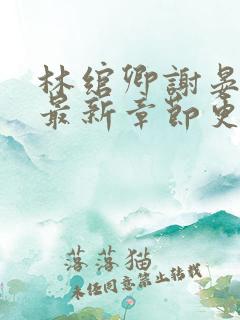 林绾卿謝晏
最新章節史
落落猫
未经同意禁止转载